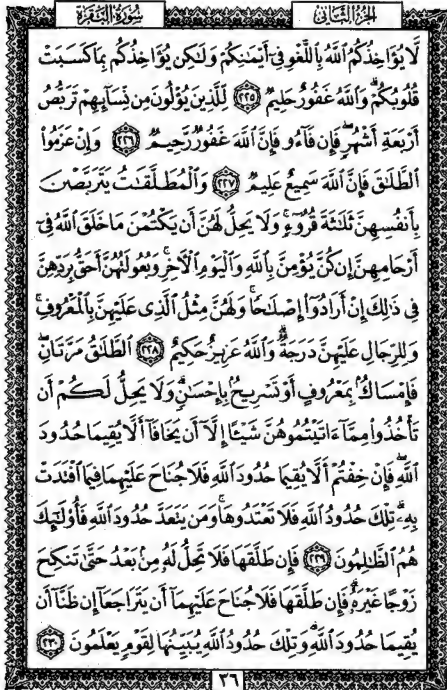 سُورَةُ البَقَرَةِ
الجُزءُ الثَّانِى
لَّا يُؤَاخِذُكُمُ ٱللَّهُ بِٱللَّغْوِ فِىٓ أَيْمَٰنِكُمْ وَلَٰكِن يُؤَاخِذُكُم بِمَا كَسَبَتْ
قُلُوبُكُمْ ۗ وَٱللَّهُ غَفُورٌ حَلِيمٌ ٢٢٥ لِّلَّذِينَ يُؤْلُونَ مِن نِّسَآئِهِمْ تَرَبُّصُ
أَرْبَعَةِ أَشْهُرٍ ۖ فَإِن فَآءُو فَإِنَّ ٱللَّهَ غَفُورٌ رَّحِيمٌ ٢٢٦ وَإِنْ عَزَمُوا۟
ٱلطَّلَٰقَ فَإِنَّ ٱللَّهَ سَمِيعٌ عَلِيمٌ ٢٢٧ وَٱلْمُطَلَّقَٰتُ يَتَرَبَّصْنَ
بِأَنفُسِهِنَّ ثَلَٰثَةَ قُرُوٓءٍ ۚ وَلَا يَحِلُّ لَهُنَّ أَن يَكْتُمْنَ مَا خَلَقَ ٱللَّهُ فِىٓ
أَرْحَامِهِنَّ إِن كُنَّ يُؤْمِنَّ بِٱللَّهِ وَٱلْيَوْمِ ٱلْأَخِرِ ۚ وَبُعُولَتُهُنَّ أَحَقُّ بِرَدِّهِنَّ
فِى ذَٰلِكَ إِنْ أَرَادُوٓا۟ إِصْلَٰحًا ۚ وَلَهُنَّ مِثْلُ ٱلَّذِى عَلَيْهِنَّ بِٱلْمَعْرُوفِ ۚ
وَلِلرِّجَالِ عَلَيْهِنَّ دَرَجَةٌ ۗ وَٱللَّهُ عَزِيزٌ حَكِيمٌ ٢٢٨ ٱلطَّلَٰقُ مَرَّتَانِ ۖ
فَإِمْسَاكٌۢ بِمَعْرُوفٍ أَوْ تَسْرِيحٌۢ بِإِحْسَٰنٍ ۗ وَلَا يَحِلُّ لَكُمْ أَن
تَأْخُذُوا۟ مِمَّآ ءَاتَيْتُمُوهُنَّ شَيْـًٔا إِلَّآ أَن يَخَافَآ أَلَّا يُقِيمَا حُدُودَ
ٱللَّهِ ۖ فَإِنْ خِفْتُمْ أَلَّا يُقِيمَا حُدُودَ ٱللَّهِ فَلَا جُنَاحَ عَلَيْهِمَا فِيمَا ٱفْتَدَتْ
بِهِۦ ۗ تِلْكَ حُدُودُ ٱللَّهِ فَلَا تَعْتَدُوهَا ۚ وَمَن يَتَعَدَّ حُدُودَ ٱللَّهِ فَأُو۟لَٰٓئِكَ
هُمُ ٱلظَّٰلِمُونَ ٢٢٩ فَإِن طَلَّقَهَا فَلَا تَحِلُّ لَهُۥ مِنۢ بَعْدُ حَتَّىٰ تَنكِحَ
زَوْجًا غَيْرَهُۥ ۗ فَإِن طَلَّقَهَا فَلَا جُنَاحَ عَلَيْهِمَآ أَن يَتَرَاجَعَآ إِن ظَنَّآ أَن
يُقِيمَا حُدُودَ ٱللَّهِ ۗ وَتِلْكَ حُدُودُ ٱللَّهِ يُبَيِّنُهَا لِقَوْمٍ يَعْلَمُونَ ٢٣٠
٣٦